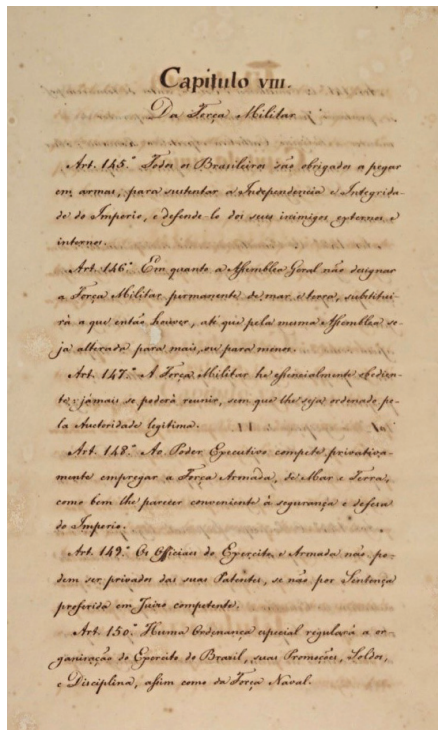 Capitulo VIII.
Da Força Militar.
Art. 145.º Todos os Brasileiros são obrigados a pegar
em armas, para sustentar a Independencia e Integrida-
de do Imperio, e defende-lo dos seus inimigos externos e
internos.
Art. 146.º Em quanto a Assemblea Geral não designar
a Força Militar permanente de mar e terra, substitui-
rá a que então houver, até que pela mesma Assemblea se-
ja alterada para mais, ou para menos.
Art. 147.º A Força Militar he essencialmente obedien-
te; jamais se poderá reunir, sem que lhe seja ordenado pe-
la Auctoridade legitima.
Art. 148.º Ao Poder Executivo compete privativa-
mente empregar a Força Armada, de Mar e Terra,
como bem lhe parecer conveniente á segurança e defesa
do Imperio.
Art. 149.º Os Officiaes do Exercito, e Armada não po-
dem ser privados das suas Patentes, se não por Sentença
proferida em Juizo competente.
Art. 150.º Huma Ordenança especial regulará a or-
ganisação do Exercito do Brasil, suas Promoções, Soldos,
e Disciplina, assim como da Força Naval.